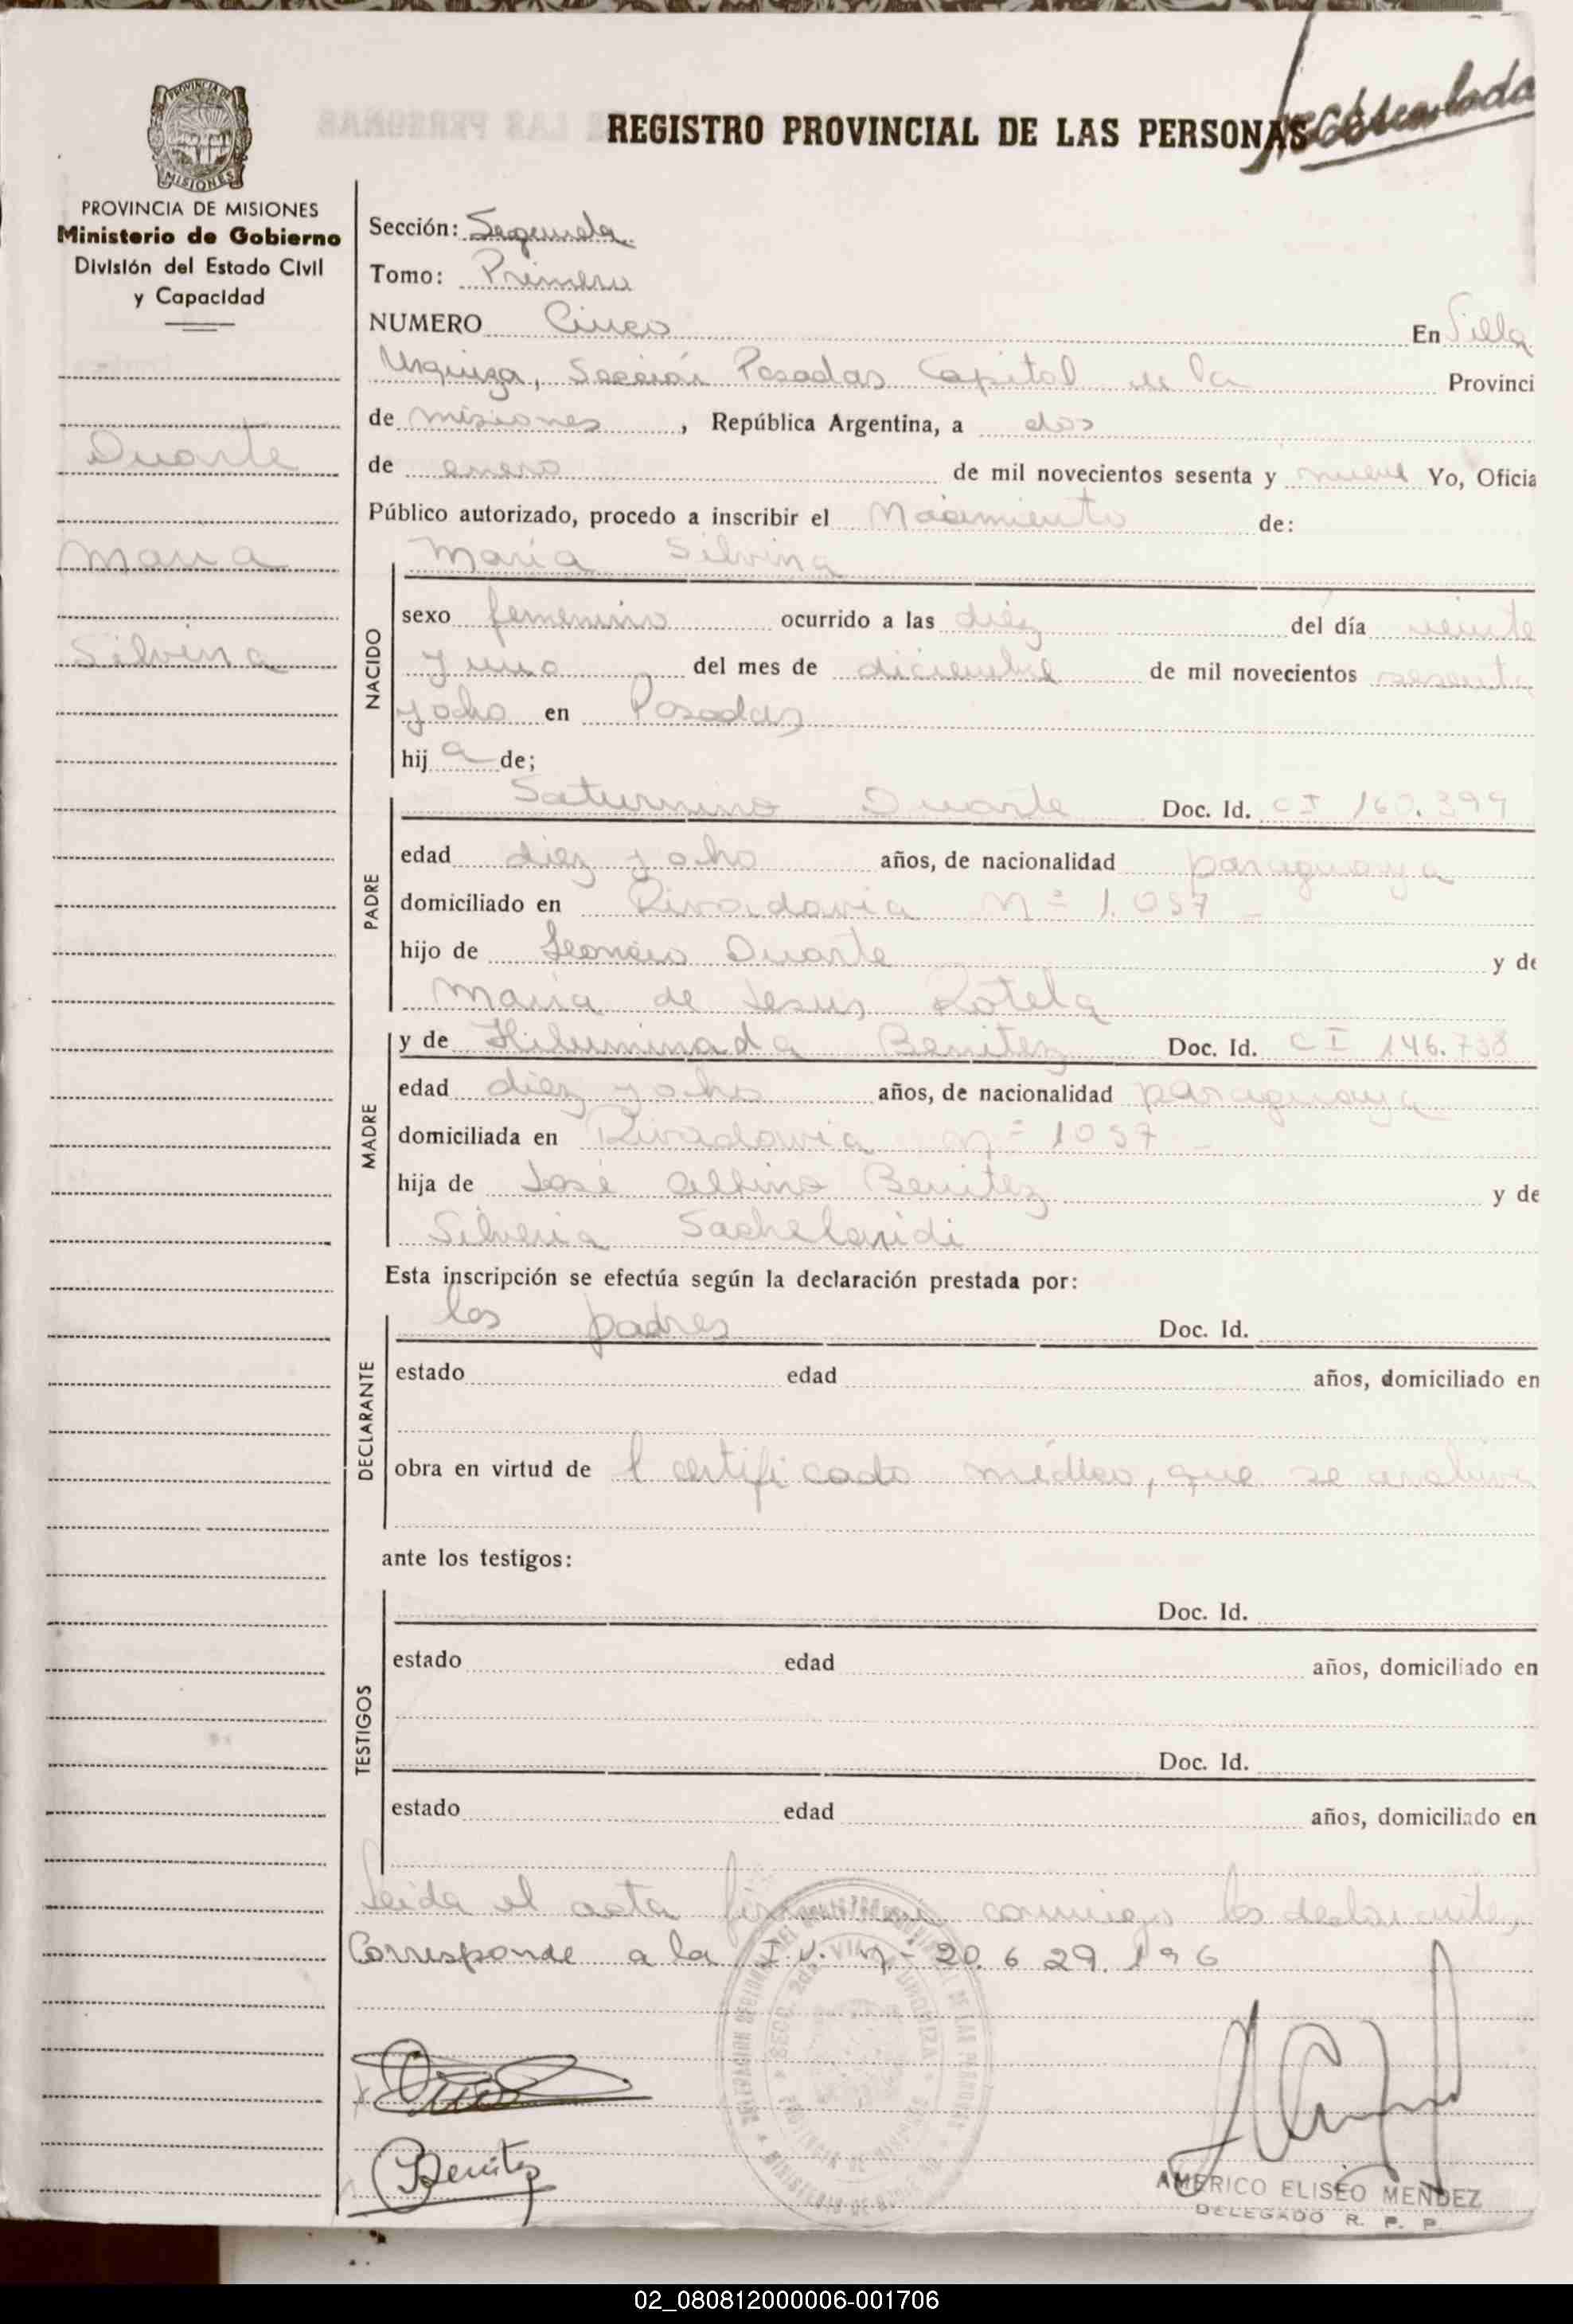 REGISTRO PROVINCIAL DE LAS PERSONAS
PROVINCIA DE MISIONES
Ministerio de Gobierno
División del Estado Civil
y Capacidad
Duarte
Maria
Silvina
Sección: Segunda
Tomo: Primero
NUMERO Cinco En Villa
Urquiza, Sección Posadas Capital de la Provinci
de misiones, República Argentina, a dos
de enero de mil novecientos sesenta y nueve Yo, Oficia
Público autorizado, procedo a inscribir el Nacimiento de:
NACIDO
María Silvina
sexo femenino ocurrido a las diez del día veinte
y uno del mes de diciembre de mil novecientos sesenta
y ocho en Posadas
hij a de;
PADRE
Saturnino Duarte Doc. Id. CI 160.399
edad diez y ocho años, de nacionalidad paraguaya
domiciliado en Rivadavia Nº 1.057
hijo de Leoncio Duarte y de
María de Jesus Rotela
MADRE
y de Hiluminada Benitez Doc. Id. CI 146.738
edad diez y ocho años, de nacionalidad paraguaya
domiciliada en Rivadavia nº 1057
hija de José Albino Benitez y de
Silveria
Esta inscripción se efectúa según la declaración prestada por:
DECLARANTE
los padres Doc. Id.
estado edad años, domiciliado en
obra en virtud de l certificado médico, que se archiva
ante los testigos:
TESTIGOS
Doc. Id.
estado edad años, domiciliado en
Doc. Id.
estado edad años, domiciliado en
Leida el acta firman conmigo los declarantes
Corresponde a la I.V. nº 20.629.196
Benitez
AMERICO ELISEO MENDEZ
DELEGADO R. P. P.
02_080812000006-001706